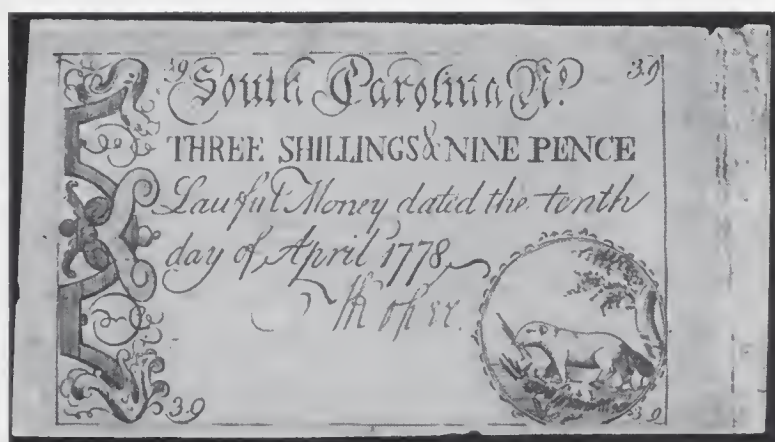 3.9 South Carolina No. 3.9
THREE SHILLINGS & NINE PENCE
Lawful Money dated the tenth
day of April 1778
3.9 3.9